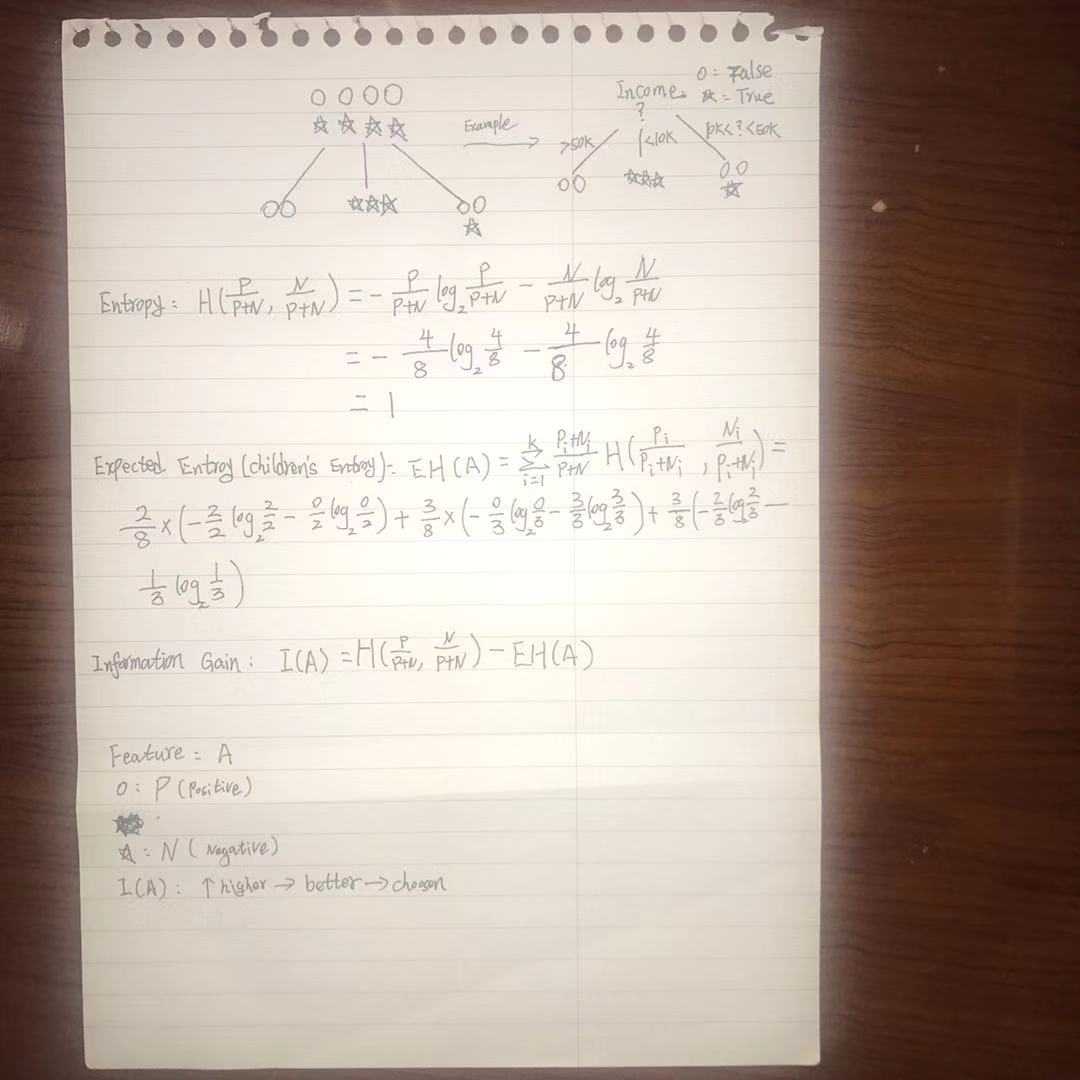 O = False
Income. ☆ = True
?
Example
>50K <10K 10K<?<50K
Entropy: H(P/(P+N), N/(P+N)) = - P/(P+N) log₂ P/(P+N) - N/(P+N) log₂ N/(P+N)
= - 4/8 log₂ 4/8 - 4/8 log₂ 4/8
= 1
Expected Entroy (children's Entroy): EH(A) = Σ_{i=1}^{k} (Pi+Ni)/(P+N) H(Pi/(Pi+Ni), Ni/(Pi+Ni)) =
2/8 × (- 2/2 log₂ 2/2 - 0/2 log₂ 0/2) + 3/8 × (- 0/3 log₂ 0/3 - 3/3 log₂ 3/3) + 3/8 (- 2/3 log₂ 2/3 -
1/3 log₂ 1/3)
Information Gain: I(A) = H(P/(P+N), N/(P+N)) - EH(A)
Feature: A
O: P (Positive)
☆: N (Negative)
I(A): ↑ higher → better → choosen